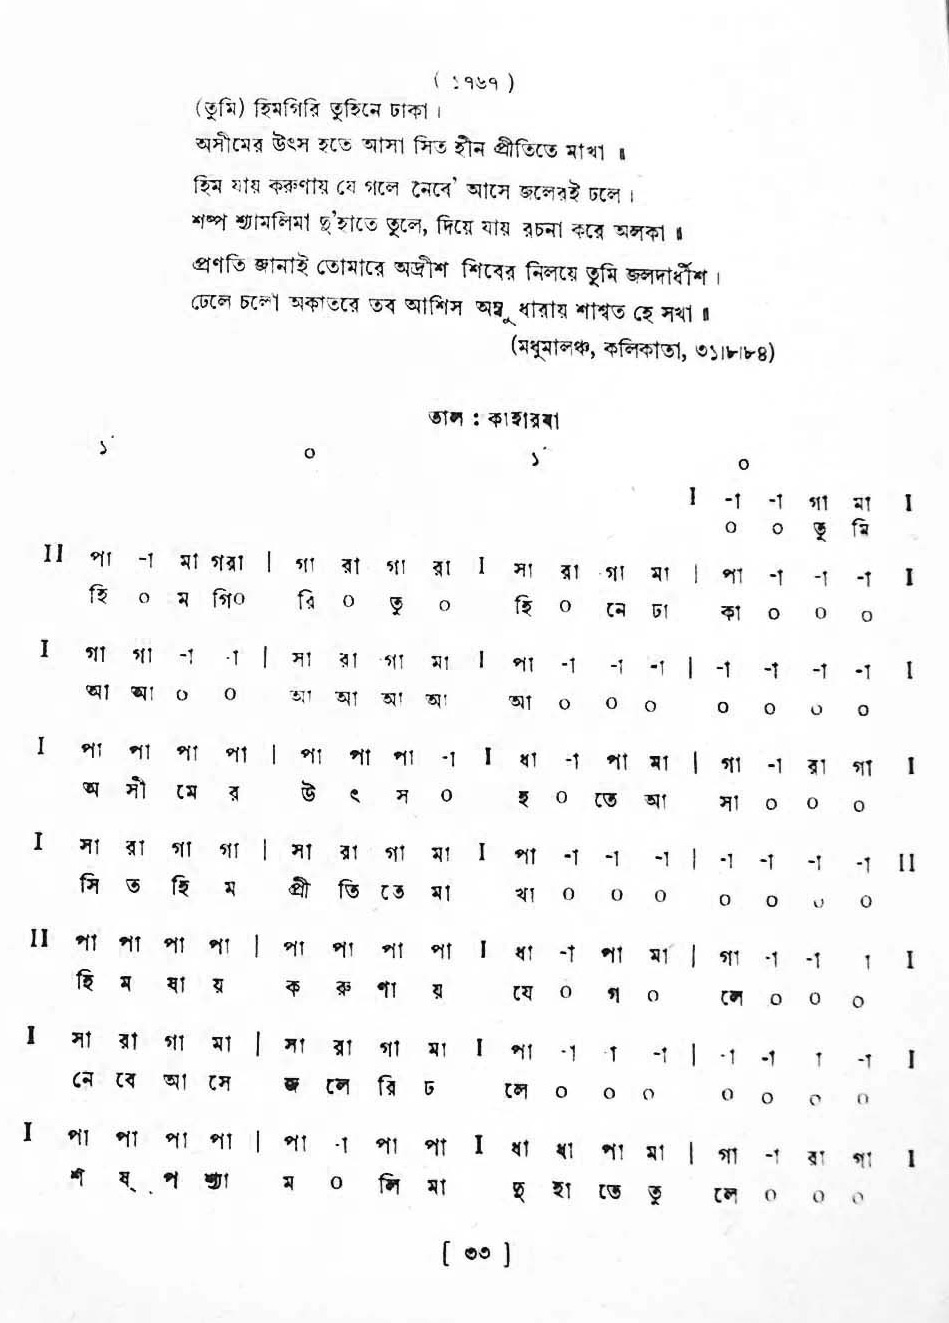 ( ১৭৬৭ )
(তুমি) হিমগিরি তুহিনে ঢাকা ।
অসীমের উৎস হতে আসা সিত হীন প্রীতিতে মাখা ॥
হিম যায় করুণায় যে গলে নৈবে' আসে জলেরই ঢলে ।
শষ্প শ্যামলিমা দু'হাতে তুলে, দিয়ে যায় রচনা করে অলকা ॥
প্রণতি জানাই তোমারে অদ্রীশ শিবের নিলয়ে তুমি জলদার্ধীশ ।
ঢেলে চলো অকাতরে তব আশিস অম্বু ধারায় শাশ্বত হে সখা ॥
(মধুমালঞ্চ, কলিকাতা, ৩১।৮।৮৪)
তাল : কাহারবা
১ ০ ১ ০
I -া -া গা মা I
০ ০ তু মি
II পা -া মা গরা | গা রা গা রা I সা রা গা মা | পা -া -া -া I
হি ০ ম গি০ রি ০ তু ০ হি ০ নে ঢা কা ০ ০ ০
I গা গা -া -া | সা রা গা মা I পা -া -া -া | -া -া -া -া I
আ আ ০ ০ আ আ আ আ আ ০ ০ ০ ০ ০ ০ ০
I পা পা পা পা | পা পা পা -া I ধা -া পা মা | গা -া রা গা I
অ সী মে র উ ৎ স ০ হ ০ তে আ সা ০ ০ ০
I সা রা গা গা | সা রা গা মা I পা -া -া -া | -া -া -া -া II
সি ত হি ম প্রী তি তে মা খা ০ ০ ০ ০ ০ ০ ০
II পা পা পা পা | পা পা পা পা I ধা -া পা মা | গা -া -া া I
হি ম যা য় ক রু ণা য় যে ০ গ ০ লে ০ ০ ০
I সা রা গা মা | সা রা গা মা I পা -া া -া | -া -া া -া I
নে বে আ সে জ লে রি ঢ লে ০ ০ ০ ০ ০ ০ ০
I পা পা পা পা | পা -া পা পা I ধা ধা পা মা | গা -া রা গা I
শ ষ্ প শ্যা ম ০ লি মা দু হা তে তু লে ০ ০ ০
[ ৩৩ ]